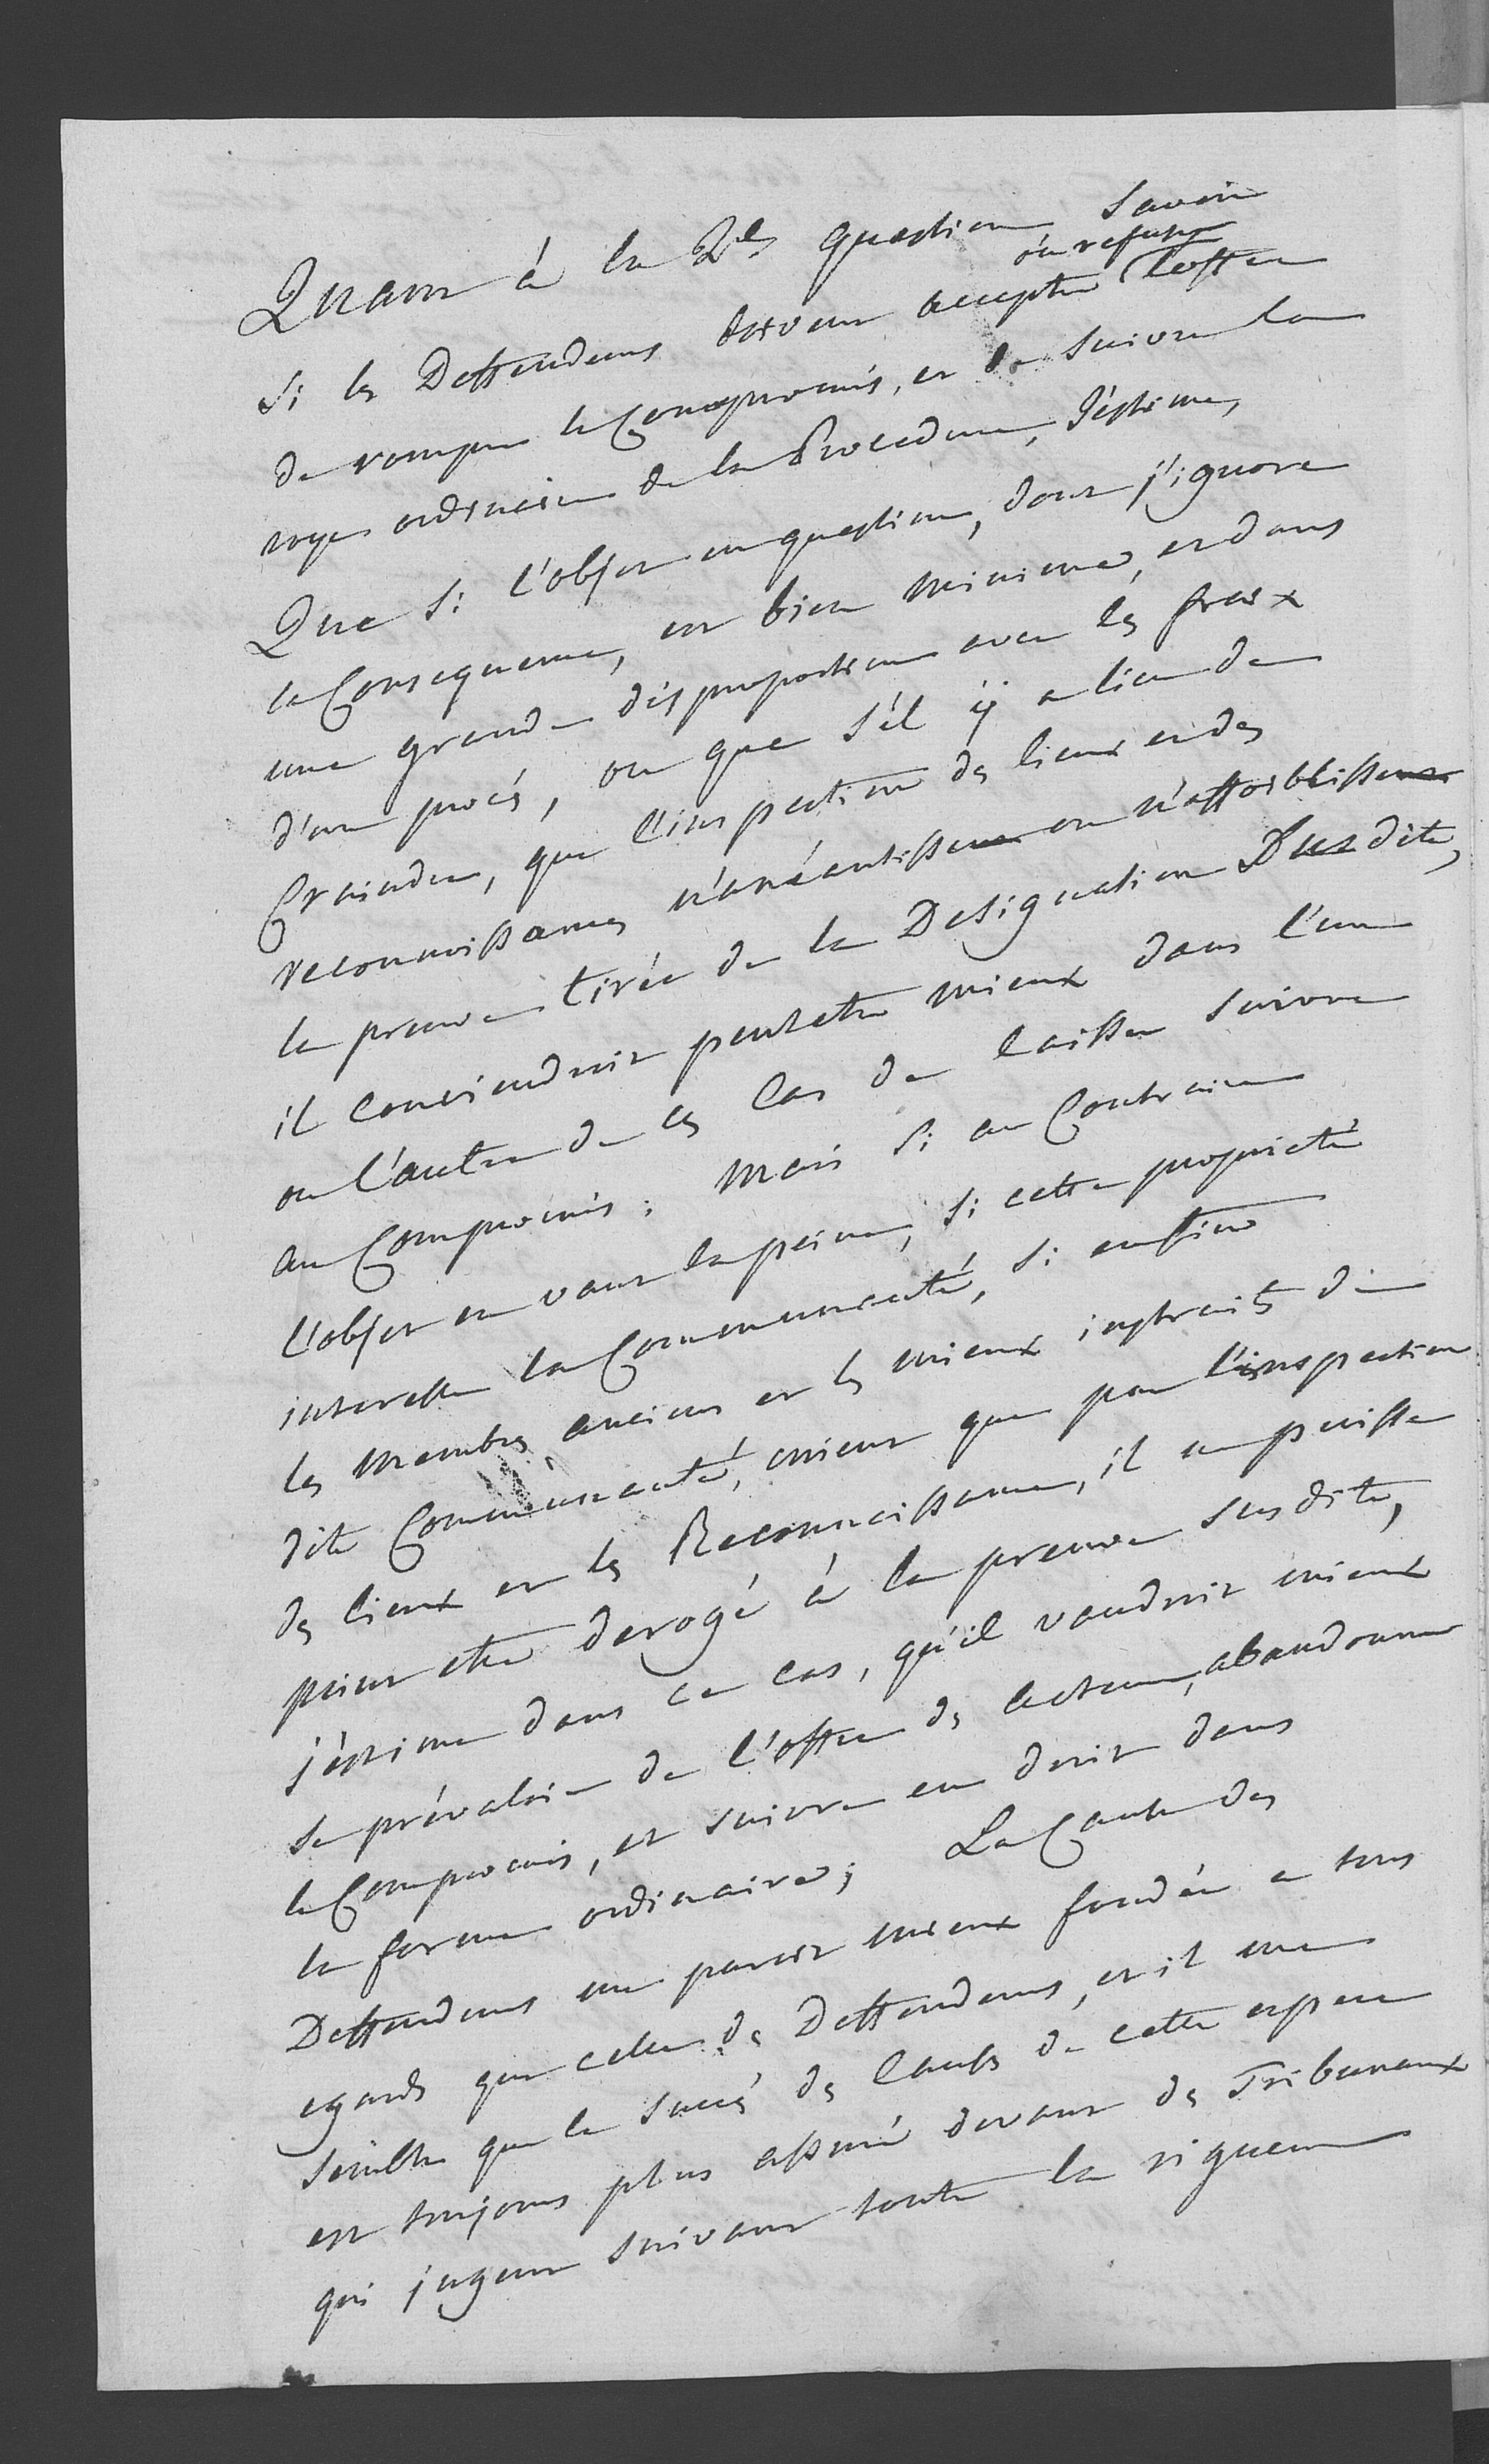 Quant à la 2de question savoir
ou refuser
si les Deffendeurs doivent accepter l'offre
de rompre le Compromis, et de suivre la
voye ordinaire de la Procedure, J'éstime,
Que si l'objet en question, dont j'ignore
la Consequence, est bien minime, et dans
une grande disproportion avec les fraix
d'un procés, ou que s'il ÿ a lieu de
Craindre, que l'inspection des lieux et des
reconnoissances n'anéantissent ou n'affoiblissent
la preuve tirée de la Designation Susdite,
il conviendroit peutetre mieux dans l'un
ou l'autre de ces Cas de laisser suivre
au Compromis; Mais si au Contraire
l'objet en vaut la peine, si cette proprieté
interesse la Communauté, si enfin
les membres anciens et les mieux instruits de
dite Communauté, croient que par l'inspection
des lieux et les Reconnoissances, il ne puisse
point etre derogé à la preuve susdite,
j'éstime dans ce cas, qu'il vaudroit mieux
se prévaloir de l'offre des acteurs, abandonner
le Compromis, et suivre en droit dans
la forme ordinaire; La Cause des
Deffendeurs me paroit mieux fondée a tous
egards que celle des Deffendeurs, et il me
semble que le succés des Causes de cette espece
est toujours plus assuré devant des Tribunaux
qui jugent suivant toute la rigueur